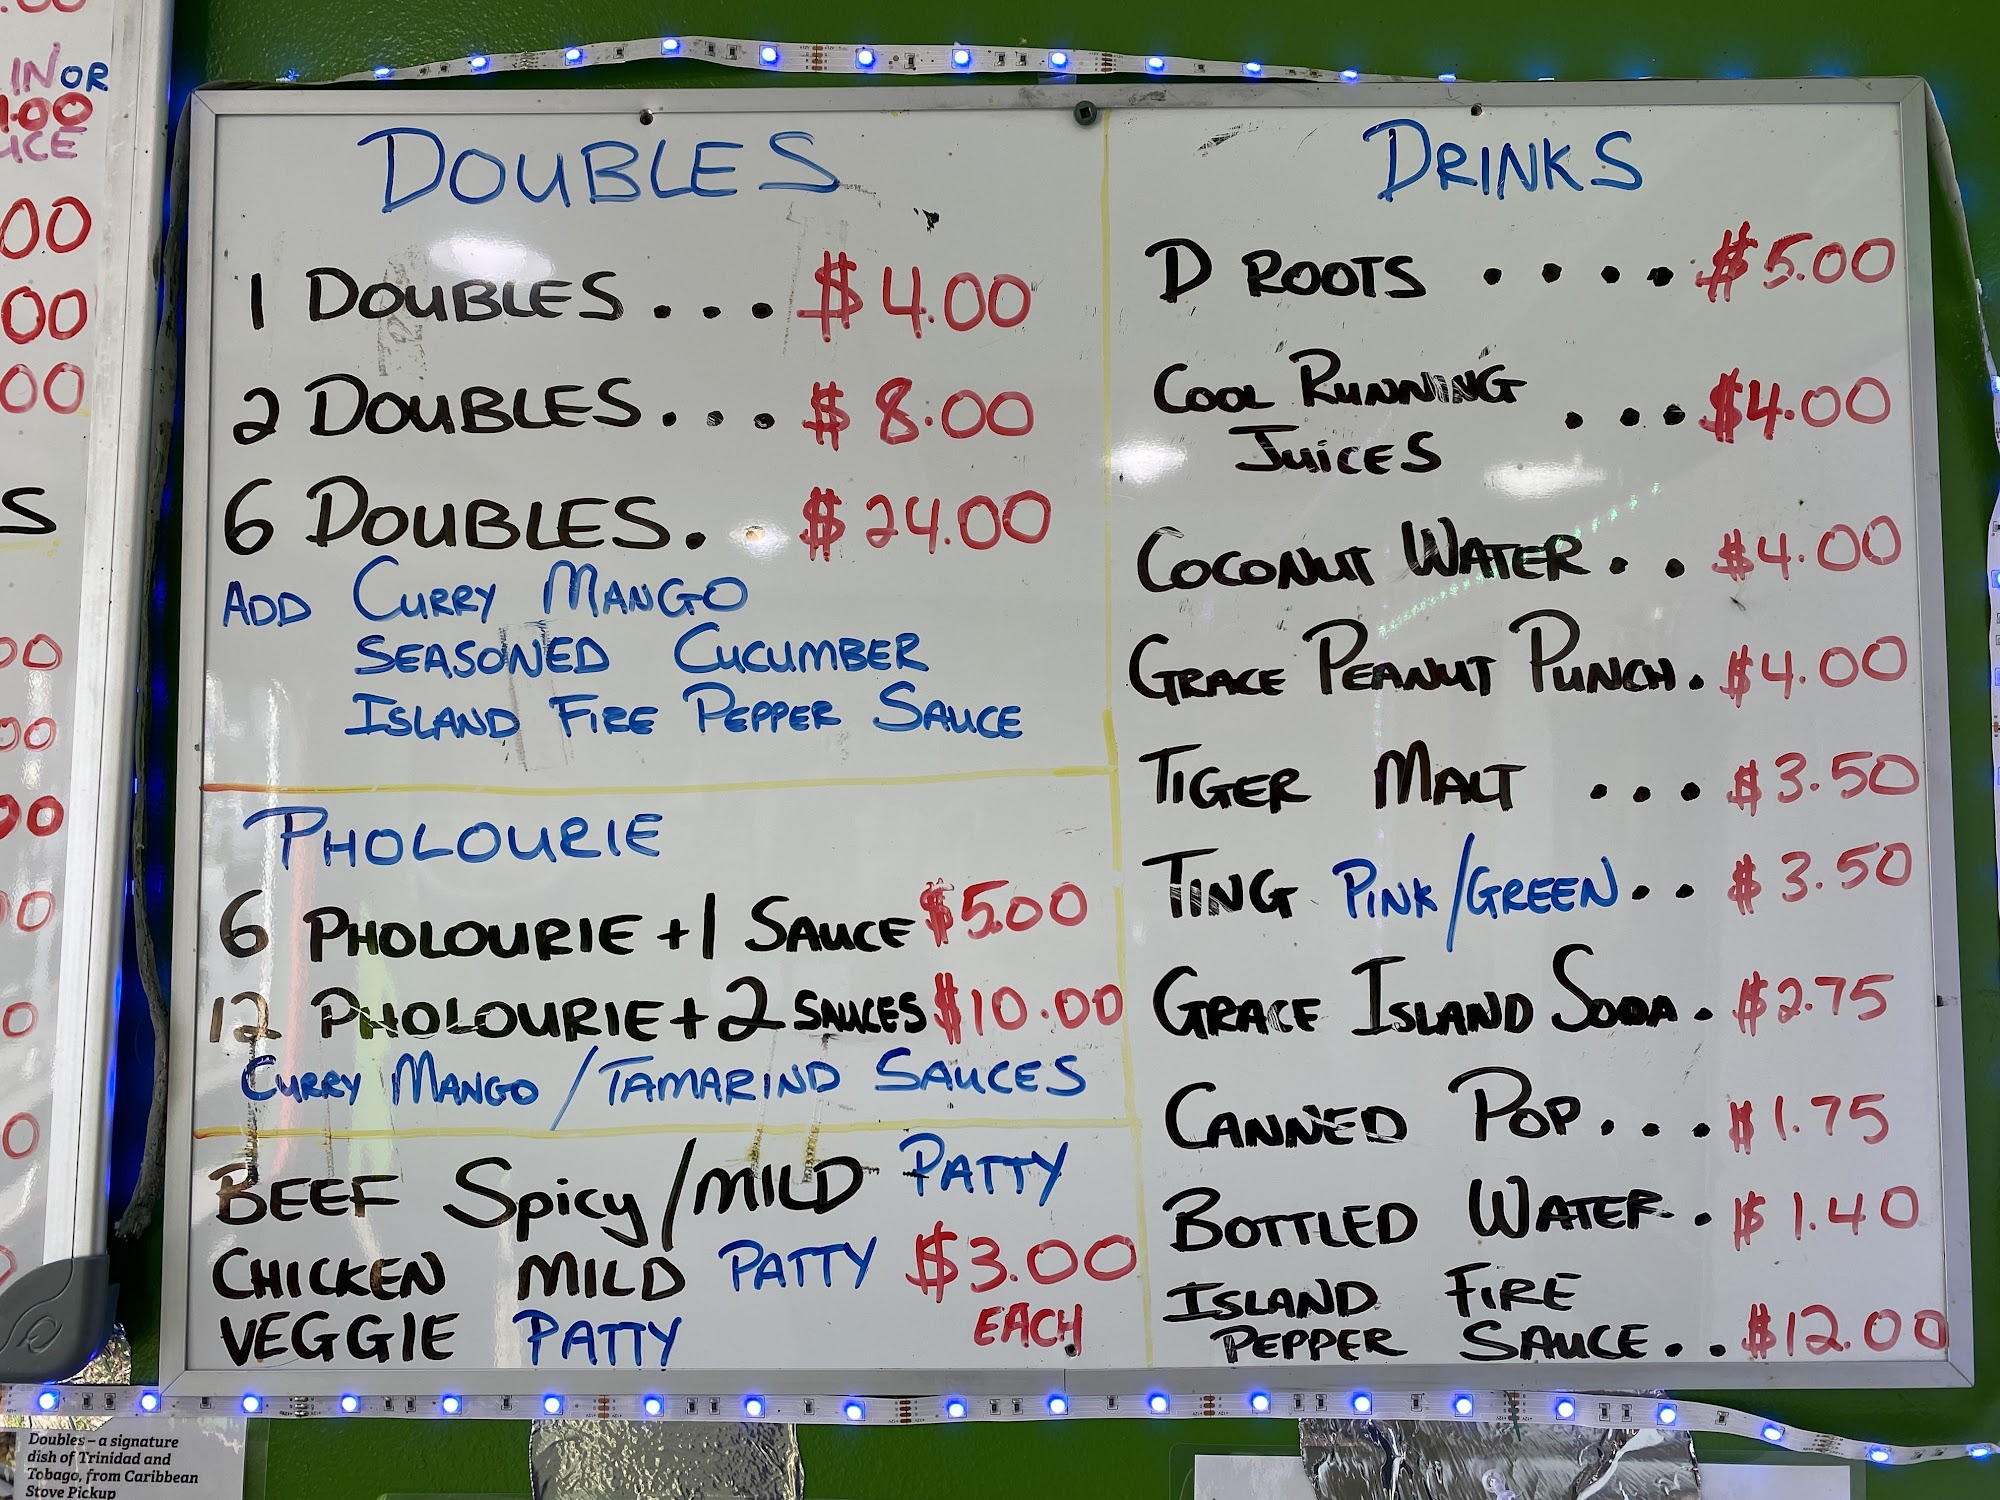 IN OR
1.00
UCE
00
00
00
S
00
00
00
DOUBLES
1 DOUBLES... $4.00
2 DOUBLES... $8.00
6 DOUBLES. $24.00
ADD CURRY MANGO
SEASONED CUCUMBER
ISLAND FIRE PEPPER SAUCE
PHOLOURIE
6 PHOLOURIE +1 SAUCE $5.00
12 PHOLOURIE + 2 SAUCES $10.00
CURRY MANGO / TAMARIND SAUCES
BEEF Spicy/MILD PATTY
CHICKEN MILD PATTY $3.00
VEGGIE PATTY EACH
DRINKS
D ROOTS .... $5.00
COOL RUNNING
JUICES ... $4.00
COCONUT WATER.. $4.00
GRACE PEANUT PUNCH. $4.00
TIGER MALT ... $3.50
TING PINK/GREEN.. $3.50
GRACE ISLAND SODA. $2.75
CANNED POP... $1.75
BOTTLED WATER. $1.40
ISLAND FIRE
PEPPER SAUCE.. $12.00
Doubles – a signature
dish of Trinidad and
Tobago, from Caribbean
Stove Pickup